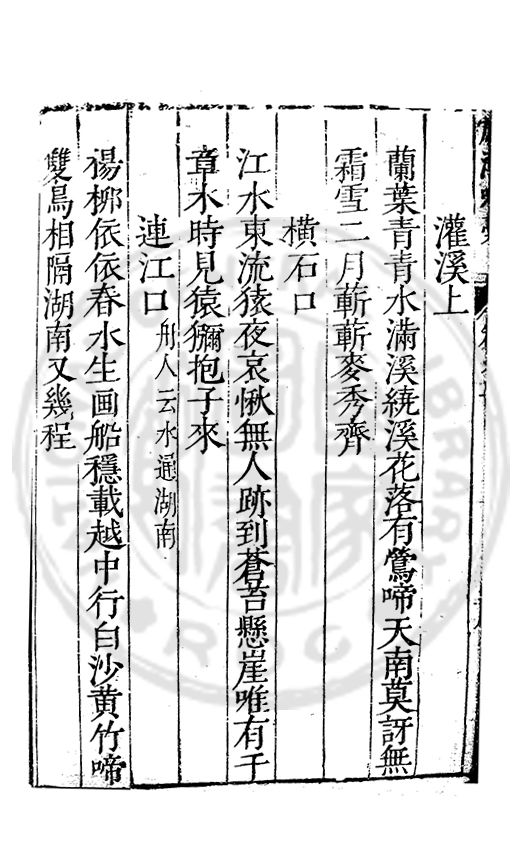 灌溪上
蘭葉青青水滿溪繞溪花落有鶯啼天南莫訝無
霜雪二月蔪蔪麥秀齊
橫石口
江水東流猿夜哀愀無人跡到蒼苔懸崖唯有千
章木時見猿獼抱子來
連江口 舟人云水通湖南
楊栁依依春水生画船穩載越中行白沙黃竹啼
雙鳥相隔湖南又幾程